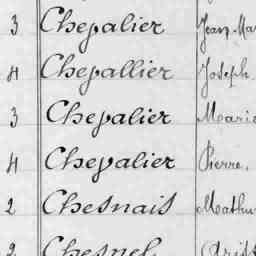 3 Chevalier Jean-Mar
4 Chevallier Joseph
3 Chevalier Marie
4 Chevalier Pierre.
2 Chesnais Mathu
2 Chesnel